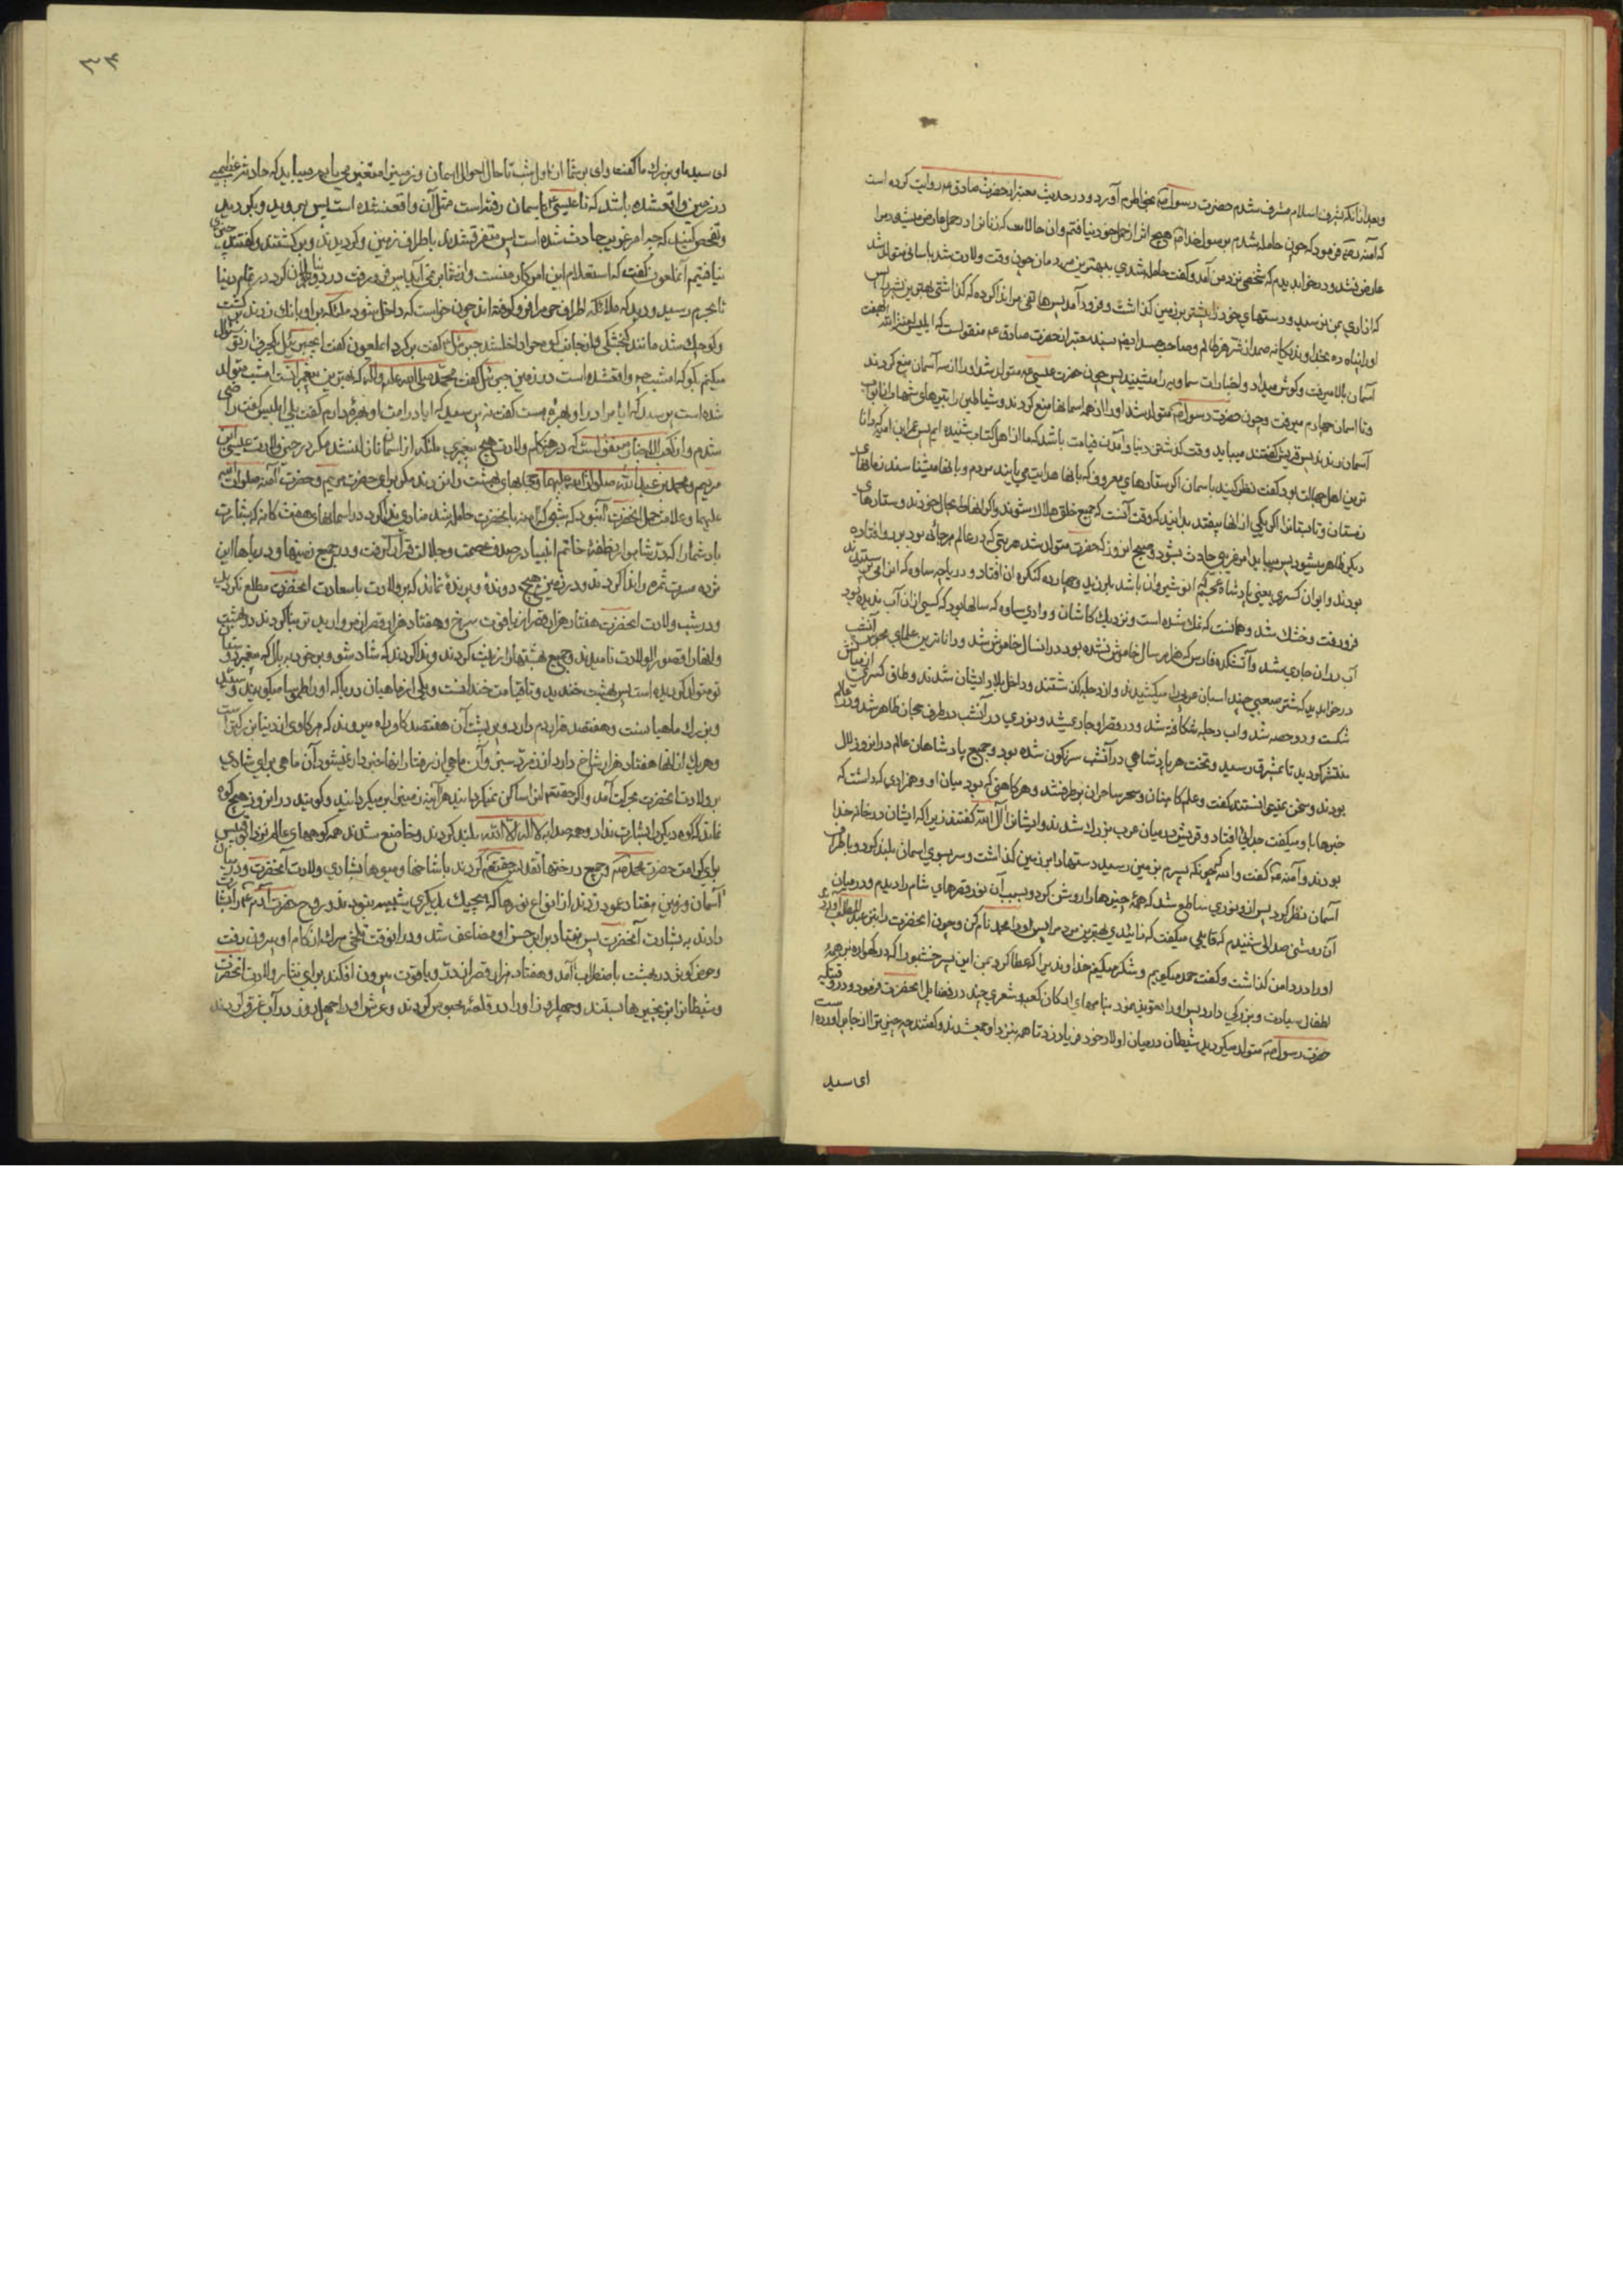 و بعد از آنکه بشرف اسلام مشرف شدم حضرت رسول ص بخاطرم آورد و در حدیث معتبر از حضرت صادق ع روایت کرده است
که آمنه رض فرمود که چون حامله شدم برسول خدا ص هیچ اثر از حمل در خود نیافتم و آن حالات که زنانرا در حمل عارض میشود مرا
عارض نشد و در خواب دیدم که شخصی نزد من آمد و گفت حامله شدی ببهترین مردمان چون وقت ولادت شد باسانی متولد شد
که ازاری بمن نرسید و دستهای خود را پیشتر بر زمین گذاشت و فرود آمد پس هاتفی مرا ندا کرد که گذاشتی بهترین بشر را پس
او را پناه ده بخداوند یگانه صمد از شر هر ظالم و صاحب حسد ایضا بسند معتبر از حضرت صادق ع منقولست که ابلیس لعنه الله بهفت
آسمان بالا میرفت و گوش میداد و اخبارات سماویه را میشنید پس چون حضرت عیسی ع متولد شد او را از سه آسمان منع کردند
و تا اسمان چهارم میرفت و چون حضرت رسول ص متولد شد او را از همه اسمانها منع کردند و شیاطین را بتیرهای شهاب از ابواب
آسمان راندند پس قریش گفتند میباید وقت گذشتن دنیا و آمدن قیامت باشد که ما از اهل کتاب شنیده ایم پس عمرو بن امیه که دانا
ترین اهل جهالت بود گفت نظر کنید باسمان اگر ستارهای معروف که بانها هدایت می یابند مردم و بانها میشناسند زمانهای
زمستان و تابستانرا اگر یکی از انها بیفتد بدانید که وقت آنست که جمیع خلق هلاک شوند و اگر انها بحال خودند و ستارهای
دیگر ظاهر میشود پس میباید امر غریبی حادث بشود و صبح انروز که حضرت متولد شد هر بتی که در عالم بر جائی بود برو افتاده
بودند و ایوان کسری یعنی پادشاه عجم که انوشیروان باشد بلرزید و چهارده کنگره ان افتاد و دریاچه ساوه که انرا می پرستیدند
فرو رفت و خشک شد و همانست که نمک شده است و نزدیک کاشان و وادی ساوه که سالها بود که کسی از ان آب ندیده بود
آب در ان جاری شد و آتشکده فارس که هزار سال خاموش نشده بود در انسال خاموش شد و داناترین علمای مجوس آنشب
در خواب دید که شتر صعبی چند اسبان عربی را میکشیدند و از دجله گذشتند و داخل بلاد ایشان شدند و طاق کسری از میانش
شکست و دو حصه شد و اب دجله شکافته شد و در قصر او جاری شد و نوری در آنشب در طرف حجاز ظاهر شد و در عالم
منتشر گردید تا بمشرق رسید و تخت هر پادشاهی در آنشب سرنگون شده بود و جمیع پادشاهان عالم در انروز لال
بودند و سخن نمیتوانستند گفت و علم کاهنان و سحر ساحران برطرف شد و هر کاهنی که بود میان او و همزادی که داشت که
خبرها باو میگفت جدائی افتاد و قریش در میان عرب بزرگ شدند و ایشانرا آل الله گفتند زیرا که ایشان در خانه خدا
بودند و آمنه رض گفت والله که چونکه پسرم بزمین رسید دستها را بر زمین گذاشت و سر بسوی اسمان بلند کرد و باطراف
آسمان نظر کرد پس از او نوری ساطع شد که همه چیزها را روشن کرد و بسبب آن نور قصرهای شام را دیدم و در میان
آن روشنی صدائی شنیدم که قایلی میگفت که زائیدی بهترین مردم را پس او را محمد نام کن و چون انحضرت را بنزد عبدالمطلب آوردند
او را در دامن گذاشت و گفت حمد میگویم و شکر میکنم خداوندیرا که عطا کرد بمن این پسر خشبو را که در گهواره بر همه
اطفال سیادت و بزرگی دارد پس او را تعویذ نمود بنامهای ارکان کعبه و شعری چند در فضایل انحضرت فرمود و در وقتیکه
حضرت رسول ص متولد میگردید شیطان در میان اولاد خود فریاد زد تا همه بنزد او جمع شدند و گفتند چه چیز ترا از جا بر آورده است
ای سید
۳۴
ای سید ما و بزرگ ما گفت وای بر شما از اول شب تا حال احوال اسمان و زمین را متغیر می یابم میباید که حادثه عظیمی
در زمین واقع شده باشد که تا عیسی ع باسمان رفته است مثل آن واقع نشده است پس بروید و بگردید
و تفحص کنید که چه امر غریب حادث شده است پس متفرق شدند باطراف زمین و گردیدند و برگشتند و گفتند چیزی
نیافتیم آنملعون گفت که استعلام این امر کار منست
تا بحرم رسید و دید که ملائکه اطراف حرم را فرو گرفته اند چون خواست که داخل شود ملائکه بر او بانک زدند برگشت
و کوچک شد مانند گنجشکی و از جانب کوه حرا داخل شد جبرئیل گفت برگرد ای ملعون گفت ای جبرئیل یکحرف از تو سؤال
میکنم بگو که امشب چه واقع شده است در زمین جبرئیل گفت محمد صلی الله علیه و آله که بهترین پیغمبرانست امشب متولد
شده است پرسید که ایا مرا در او بهره هست گفت نه پرسید که ایا در امت او بهره دارم گفت بلی ابلیس گفت راضی
شدم و از کعب الاحبار منقولست که در هنگام ولادت هیچ پیغمبری ملائکه از اسمان نازل نشد مگر در حین ولادت عیسی بن
مریم و محمد بن عبدالله صلوات الله علیهما و حجابهای بهشت را نزدند مگر برای حضرت مریم و حضرت آمنه صلوات الله
علیهما و علامت حمل انحضرت آنبود که شبی که آمنه بانحضرت حامله شد منادی ندا کرد در اسمانهای هفت گانه که بشارت
باد شما را که در شاهوار نطفه خاتم انبیا در صدف عصمت و جلالت قرار گرفت و در جمیع زمینها و دریاها این
مژده مسرت ثمره را ندا کردند و در زمین هیچ دونده و پرنده نماند که بر ولادت باسعادت انحضرت مطلع نگردید
و در شب ولادت انحضرت هفتاد هزار قصر از یاقوت سرخ و هفتاد هزار قصر از مروارید تر بنا کردند در بهشت
و انها را قصور الولادت نامیدند و جمیع بهشتها را زینت کردند و ندا کردند که شاد شو و بر خود ببال که پیغمبر
تو متولد گردیده است پس بهشت خندید و تا قیامت خندانست و یکی از ماهیان دریا که او را طموسا میگویند و سید
و بزرگ ماهیانست و هفتصد هزار دم دارد و بر پشت آن هفتصد هزار گاو راه میروند که هر گاوی از دنیا بزرگتر است
و هر یک از انها هفتاد هزار شاخ دارد از زمرد سبز و آن ماهی از رفتار انها خبردار نمیشود آن ماهی برای شادی
بر ولادت انحضرت بحرکت آمد و اگر حقتعالی انرا ساکن نمیگردانید هر آینه زمین را بر میگردانید و گویند در انروز هیچ کوه
نماند که کوه دیگر را بشارت نداد و همه صدا به لا اله الا الله بلند کردند و خاضع شدند همه کوههای عالم نزد ابو قبیس
برای کرامت حضرت محمد ص و جمیع درختها تقدیس حقتعالی کردند با شاخها و میوها بشادی ولادت آنحضرت و در میان
آسمان و زمین هفتاد عمود زدند از انواع نورها که هیچیک بدیگری شبیه نبودند و روح حضرت آدم ع را بشارت
دادند به بشارت آنحضرت پس هفتاد برابر حسن او مضاعف شد و در انوقت تلخی مرگ از کام او بیرون رفت
و حوض کوثر در بهشت باضطراب آمد و هفتاد هزار قصر از در و یاقوت بیرون افکند برای نثار ولادت انحضرت
و شیطانرا بزنجیرها بستند و چهل روز او را در قلعه محبوس کردند و عرش او را چهل روز در آب غرق کردند